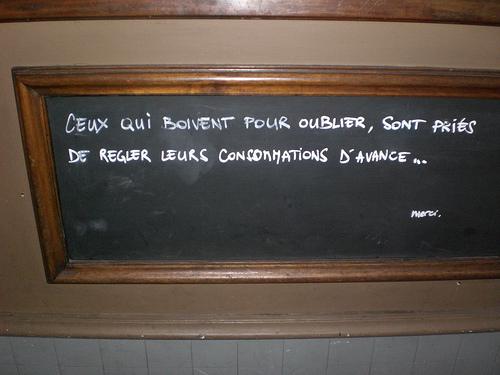 CEUX QUi BOIVENT POUR OUBLIER, SONT PRIÉS
DE REGLER LEURS CONSOMMATIONS D'AVANCE...
merci.